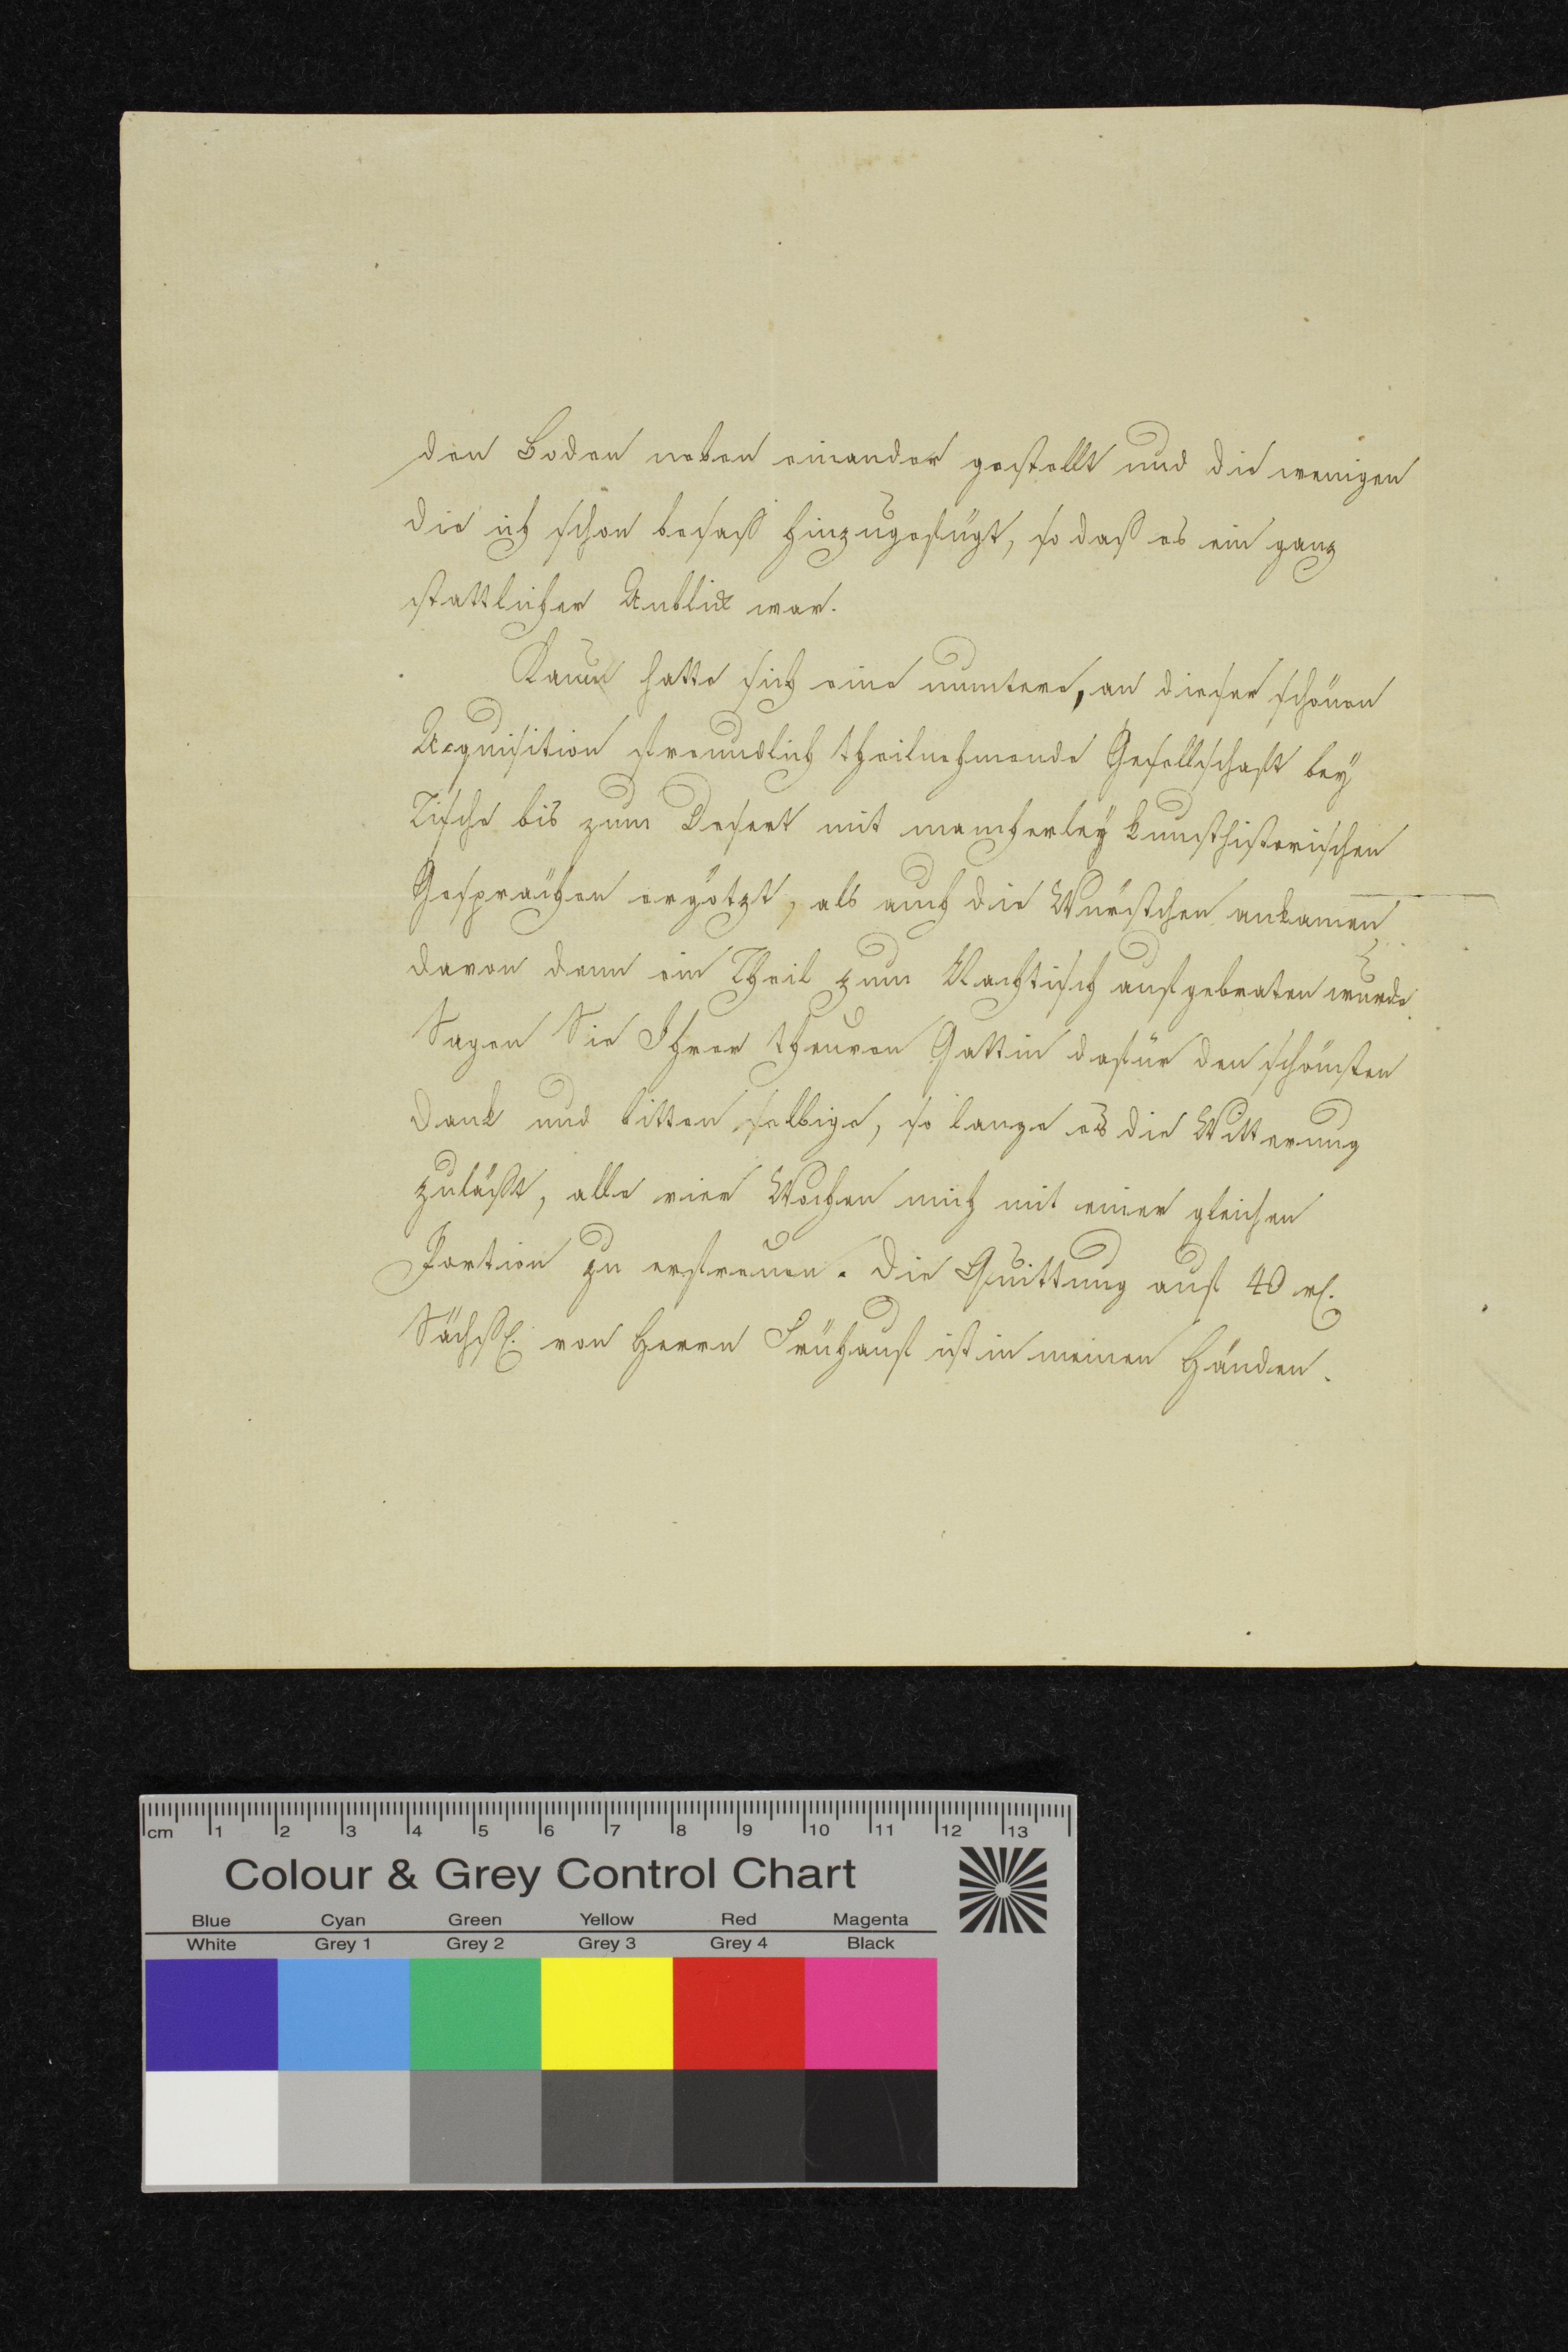 den Boden neben einander gestellt und die wenigen
die ich schon besaß hinzugefügt, so daß es ein ganz
stattlicher Anblick war.
Kaum hatte sich eine muntere, an dieser schönen
Acquisition freundlich theilnehmende Gesellschaft bey
Tische bis zum Desert mit mancherley kunsthistorischen
Gesprächen ergötzt, als auch die Würstchen ankamen,
davon denn ein Theil zum Nachtisch aufgebraten wurde.
Sagen Sie Ihrer theuren Gattin dafür den schönsten
Dank und bitten selbige, so lange es die Witterung
zuläßt, alle vier Wochen mich mit einer gleichen
Portion zu erfreuen. Die Quittung auf 40 rh.
Sächß. von Herrn Frühauf ist in meinen Händen.
cm 1 2 3 4 5 6 7 8 9 10 11 12 13
Colour & Grey Control Chart
Blue Cyan Green Yellow Red Magenta
White Grey 1 Grey 2 Grey 3 Grey 4 Black